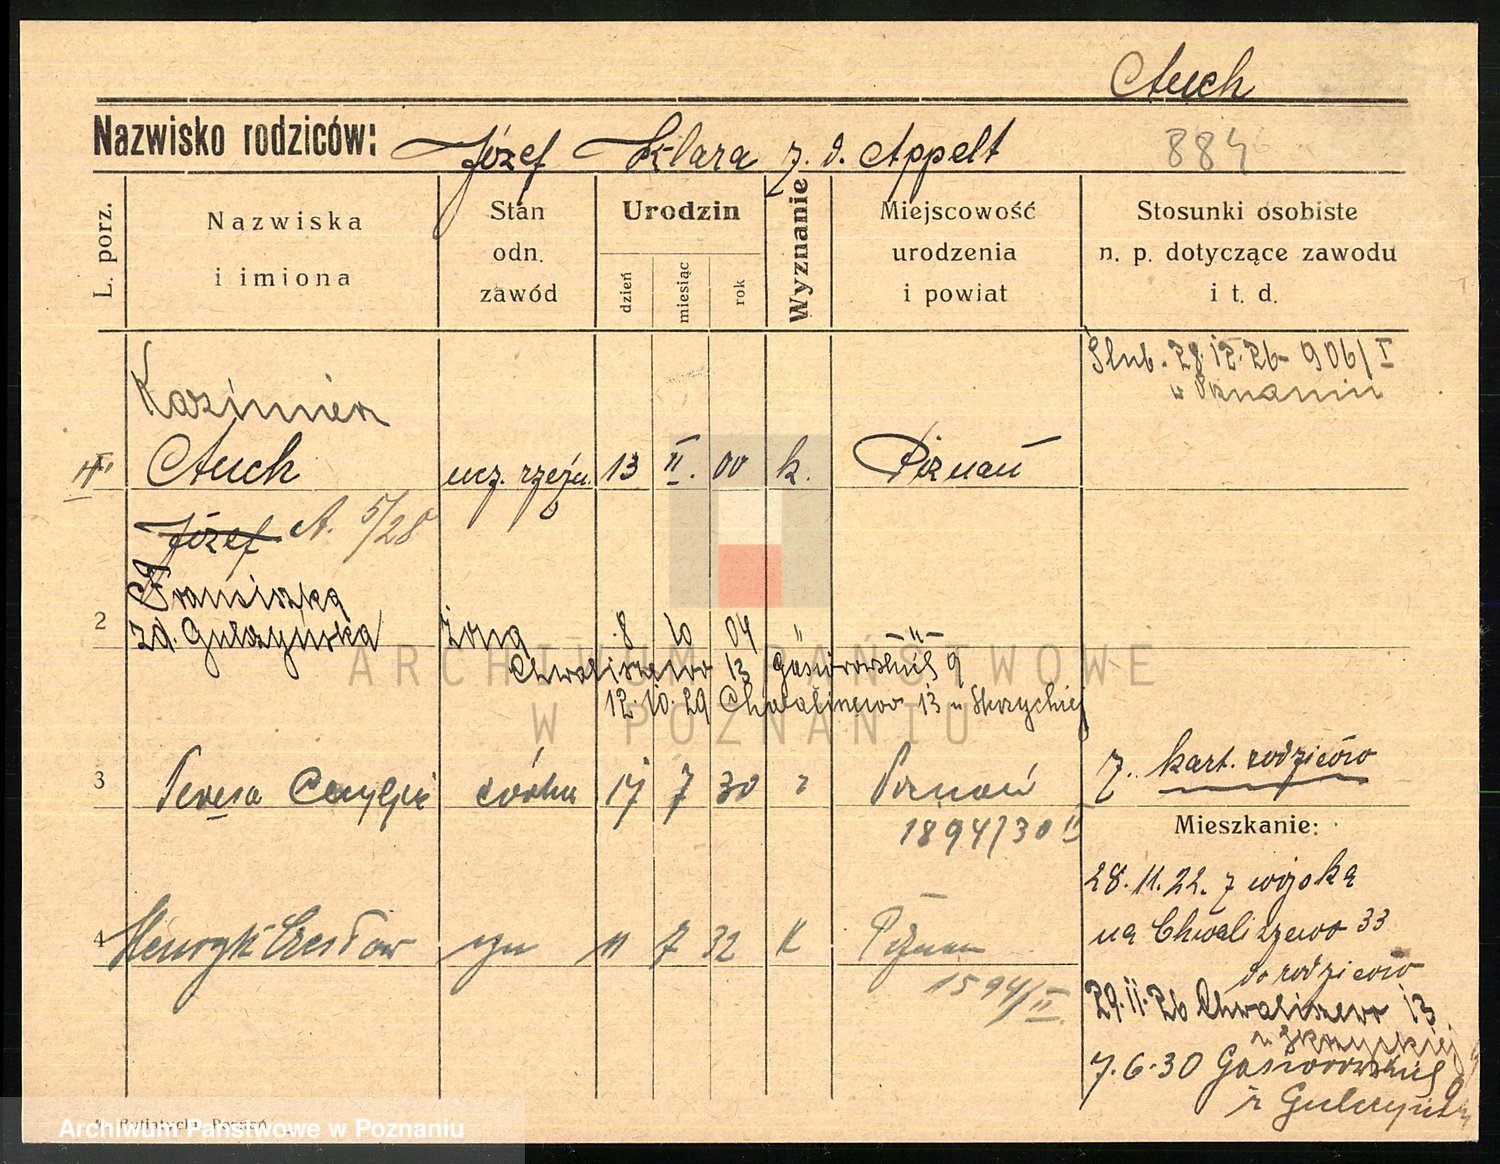 Auch
Nazwisko rodziców: Józef Klara z. d. Appelt
884
L. porz.
Nazwiska
i imiona
Stan
odn.
zawód
Urodzin
dzień
miesiąc
rok
Wyznanie
Miejscowość
urodzenia
i powiat
Stosunki osobiste
n. p. dotyczące zawodu
i t. d.
Ślub. 28.12.26 - 906/I
w Poznaniu
Kazimierz
Auch ucz. rzeźn. 13 II. 00 k. Poznań
Józef A. 5/28
Franciszka
2 zd. Gulczyńska żona 8 10 04 " -"-
Chwaliszewo 13 Gąsiorowskich 9
12.10.29 Chwaliszewo 13 u Skrzyckiej
3 Teresa córka 17 7 30 Poznań
1894/30 II
z. kart. rodziców
Mieszkanie:
28.11.22. z wojska
na Chwaliszewo 33
do rodziców
4 Henryk Czesław syn 11 7 32 k Poznań
1594/II
29.11.26 Chwaliszewo 13
u Skrzyckiej
7.6.30 Gąsiorowskich 9
ARCHIWUM PAŃSTWOWE
W POZNANIU
Archiwum Państwowe w Poznaniu